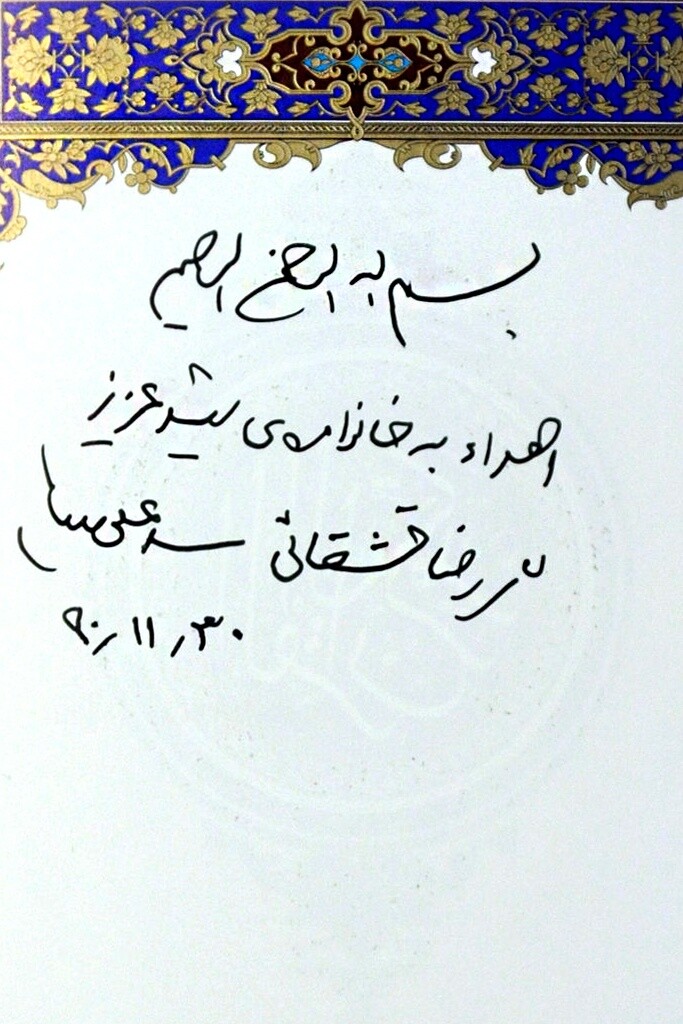 بسم الله الرحمن الرحیم
اهداء به خانواده‌ی شهید عزیز
رضا قشقائی سید علی
۹۰/۱۱/۳۰